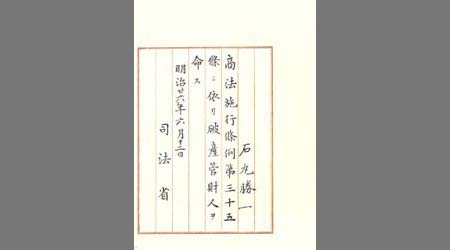 石丸勝一
商法施行條例第三十五
條ニ依リ破産管財人ヲ
命ス
明治廿六年六月十三日
司法省